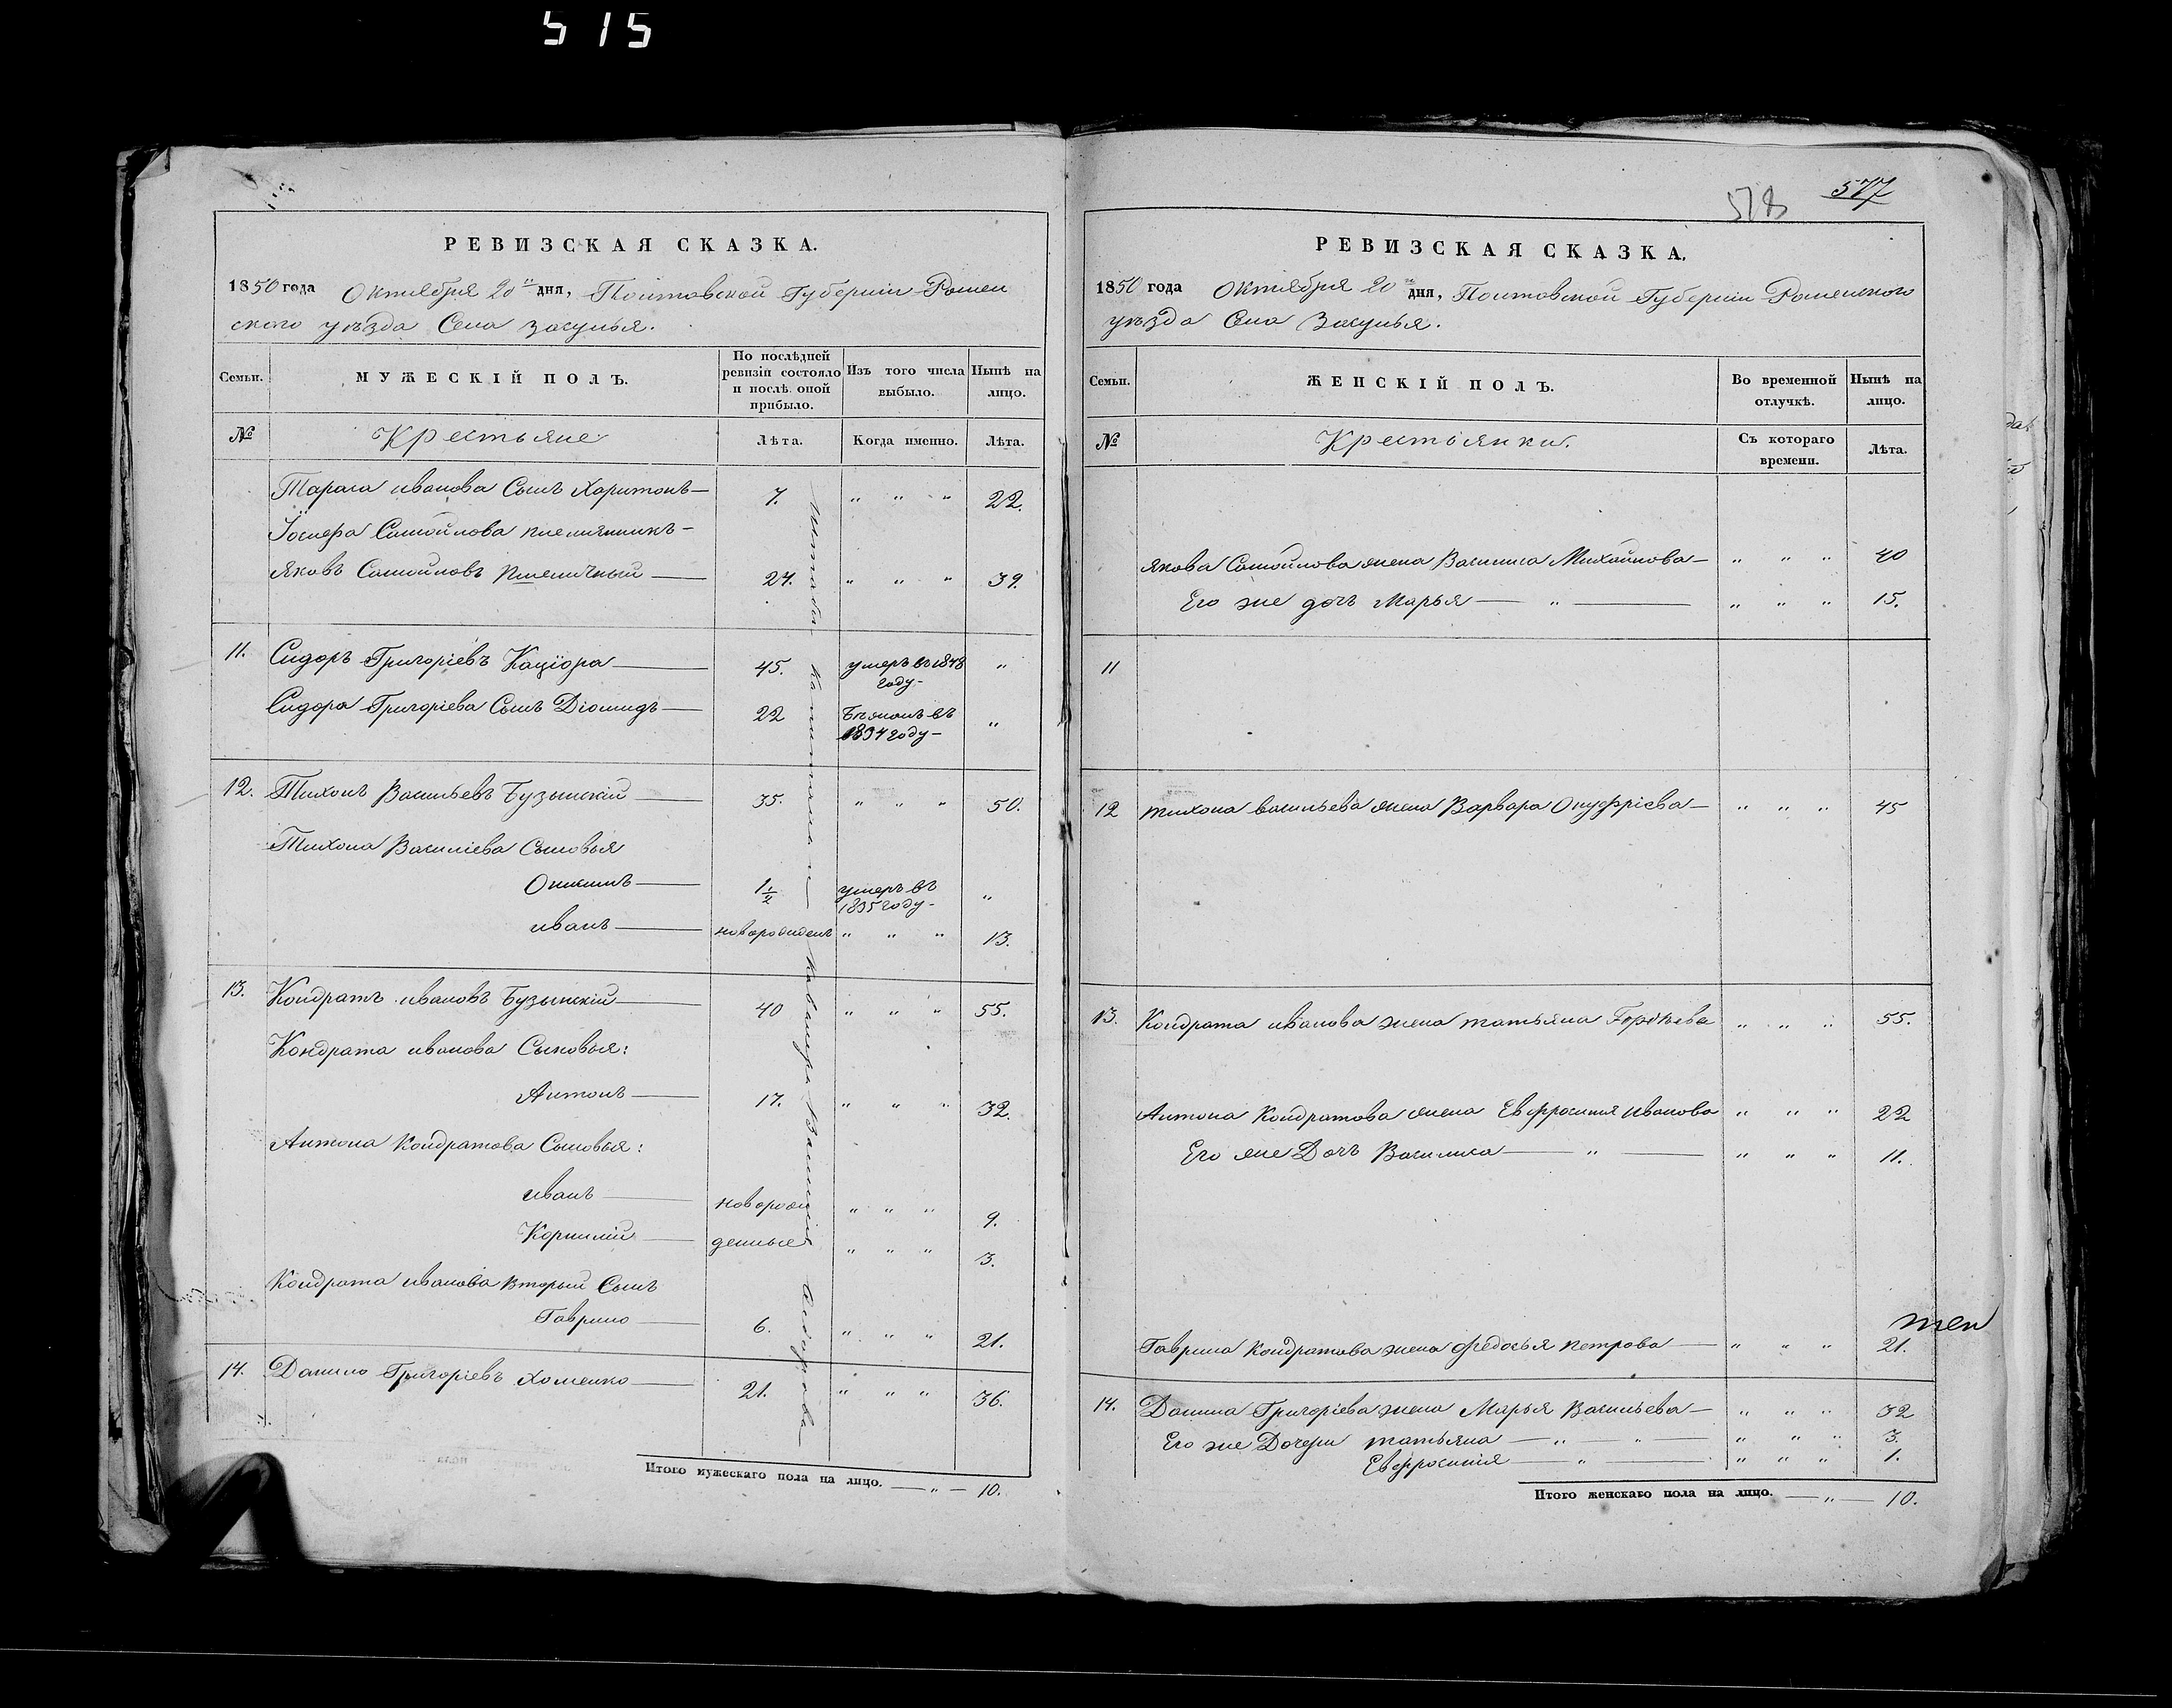 515
РЕВИЗСКАЯ СКАЗКА.
1850 года Октября 20 дня, Полтавской Губерніи Ромен
ского уѣзда Села Засулья.
Семьи.
МУЖЕСКІЙ ПОЛЪ.
По послѣдней ревизіи состояло и послѣ оной прибыло.
Изъ того числа выбыло.
Нынѣ на лицо.
№ Крестьяне Лѣта. Когда именно. Лѣта.
Тараса иванова Сынъ Харитонъ — 7. " " " 22.
Іосифа Самойлова племянникъ —
Яковъ Самойловъ Пшеничный — 24. " " " 39.
11. Сидоръ Григоріевъ Кацюра — 45. умеръ въ 1848 году - "
Сидора Григоріева Сынъ Діомидъ — 22 Бѣжалъ въ 1834 году - "
12. Тихонъ Васильевъ Бузынскій — 35. " " " 50.
Тихона Василіева Сыновья
Онисимъ — 1 1/2 умеръ въ 1835 году - "
иванъ — новорожденъ " " " 13.
13. Кондратъ ивановъ Бузынскій — 40 " " " 55.
Кондрата иванова Сыновья:
Антонъ — 17. " " " 32.
Антона Кондратова Сыновья:
иванъ — новорож " " " 9.
Корнилій — денные " " " 3.
Кондрата иванова второй Сынъ
Гаврило — 6. " " " 21.
14. Данило Григоріевъ Хоменко — 21. " " " 36.
Итого мужескаго пола на лицо. — " — 10.
578 577
РЕВИЗСКАЯ СКАЗКА.
1850 года Октября 20 дня, Полтавской Губерніи Роменского
уѣзда Села Засулья.
Семьи.
ЖЕНСКІЙ ПОЛЪ.
Во временной отлучкѣ.
Нынѣ на лицо.
№ Крестьянки. Съ котораго времени. Лѣта.
Якова Самойлова жена Василиса Михайлова — " " " 40
Его же дочь Марья — " — " " " 15.
11
12 Тихона васильева жена Варвара Онуфріева — " " " 45
13. Кондрата иванова жена татьяна Гордѣева " " " 55.
Антона Кондратова жена Евфросинія иванова " " " 22
Его же Дочь Василиса — " — " " " 11.
Гаврила Кондратова жена федосья петрова — " " " 21.
14. Данила Григоріева жена Марья Васильева — " " " 32
Его же Дочери татьяна — " — " — " " " 3.
Евфросинія — " — " " " 1.
Итого женскаго пола на лицо. — " — 10.